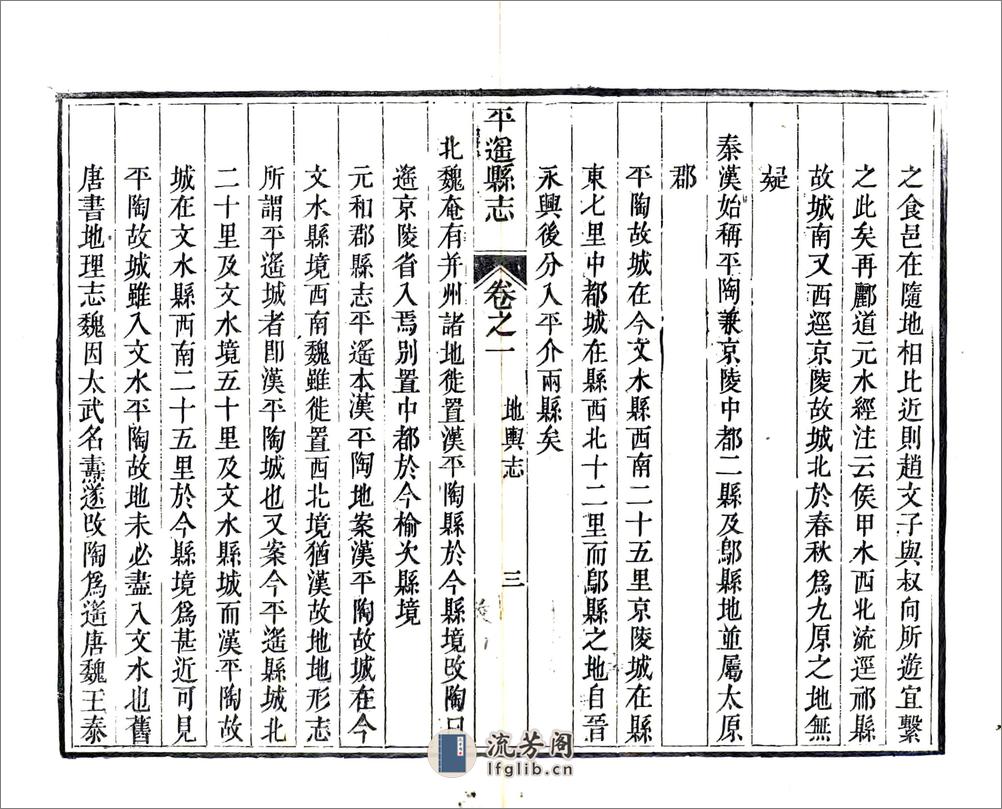 之食邑在隨地相比近則趙文子與叔向所遊宜繫
之此矣再酈道元水經注云侯甲水西北流逕祁縣
故城南又西逕京陵故城北於春秋爲九原之地無
疑
秦漢始稱平陶兼京陵中都二縣及鄔縣地並屬太原
郡
平陶故城在今文水縣西南二十五里京陵城在縣
東七里中都城在縣西北十二里而鄔縣之地自晉
永興後分入平介兩縣矣
平遙縣志
卷之一
地輿志
三
北魏奄有并州諸地徙置漢平陶縣於今縣境改陶曰
遙京陵省入焉別置中都於今榆次縣境
元和郡縣志平遙本漢平陶地案漢平陶故城在今
文水縣境西南魏雖徙置西北境猶漢故地地形志
所謂平遙城者卽漢平陶城也又案今平遙縣城北
二十里及文水境五十里及文水縣城而漢平陶故
城在文水縣西南二十五里於今縣境爲甚近可見
平陶故城雖入文水平陶故地未必盡入文水也舊
唐書地理志魏因太武名燾遂改陶爲遙唐魏王泰
流芳阁
lfglib.cn